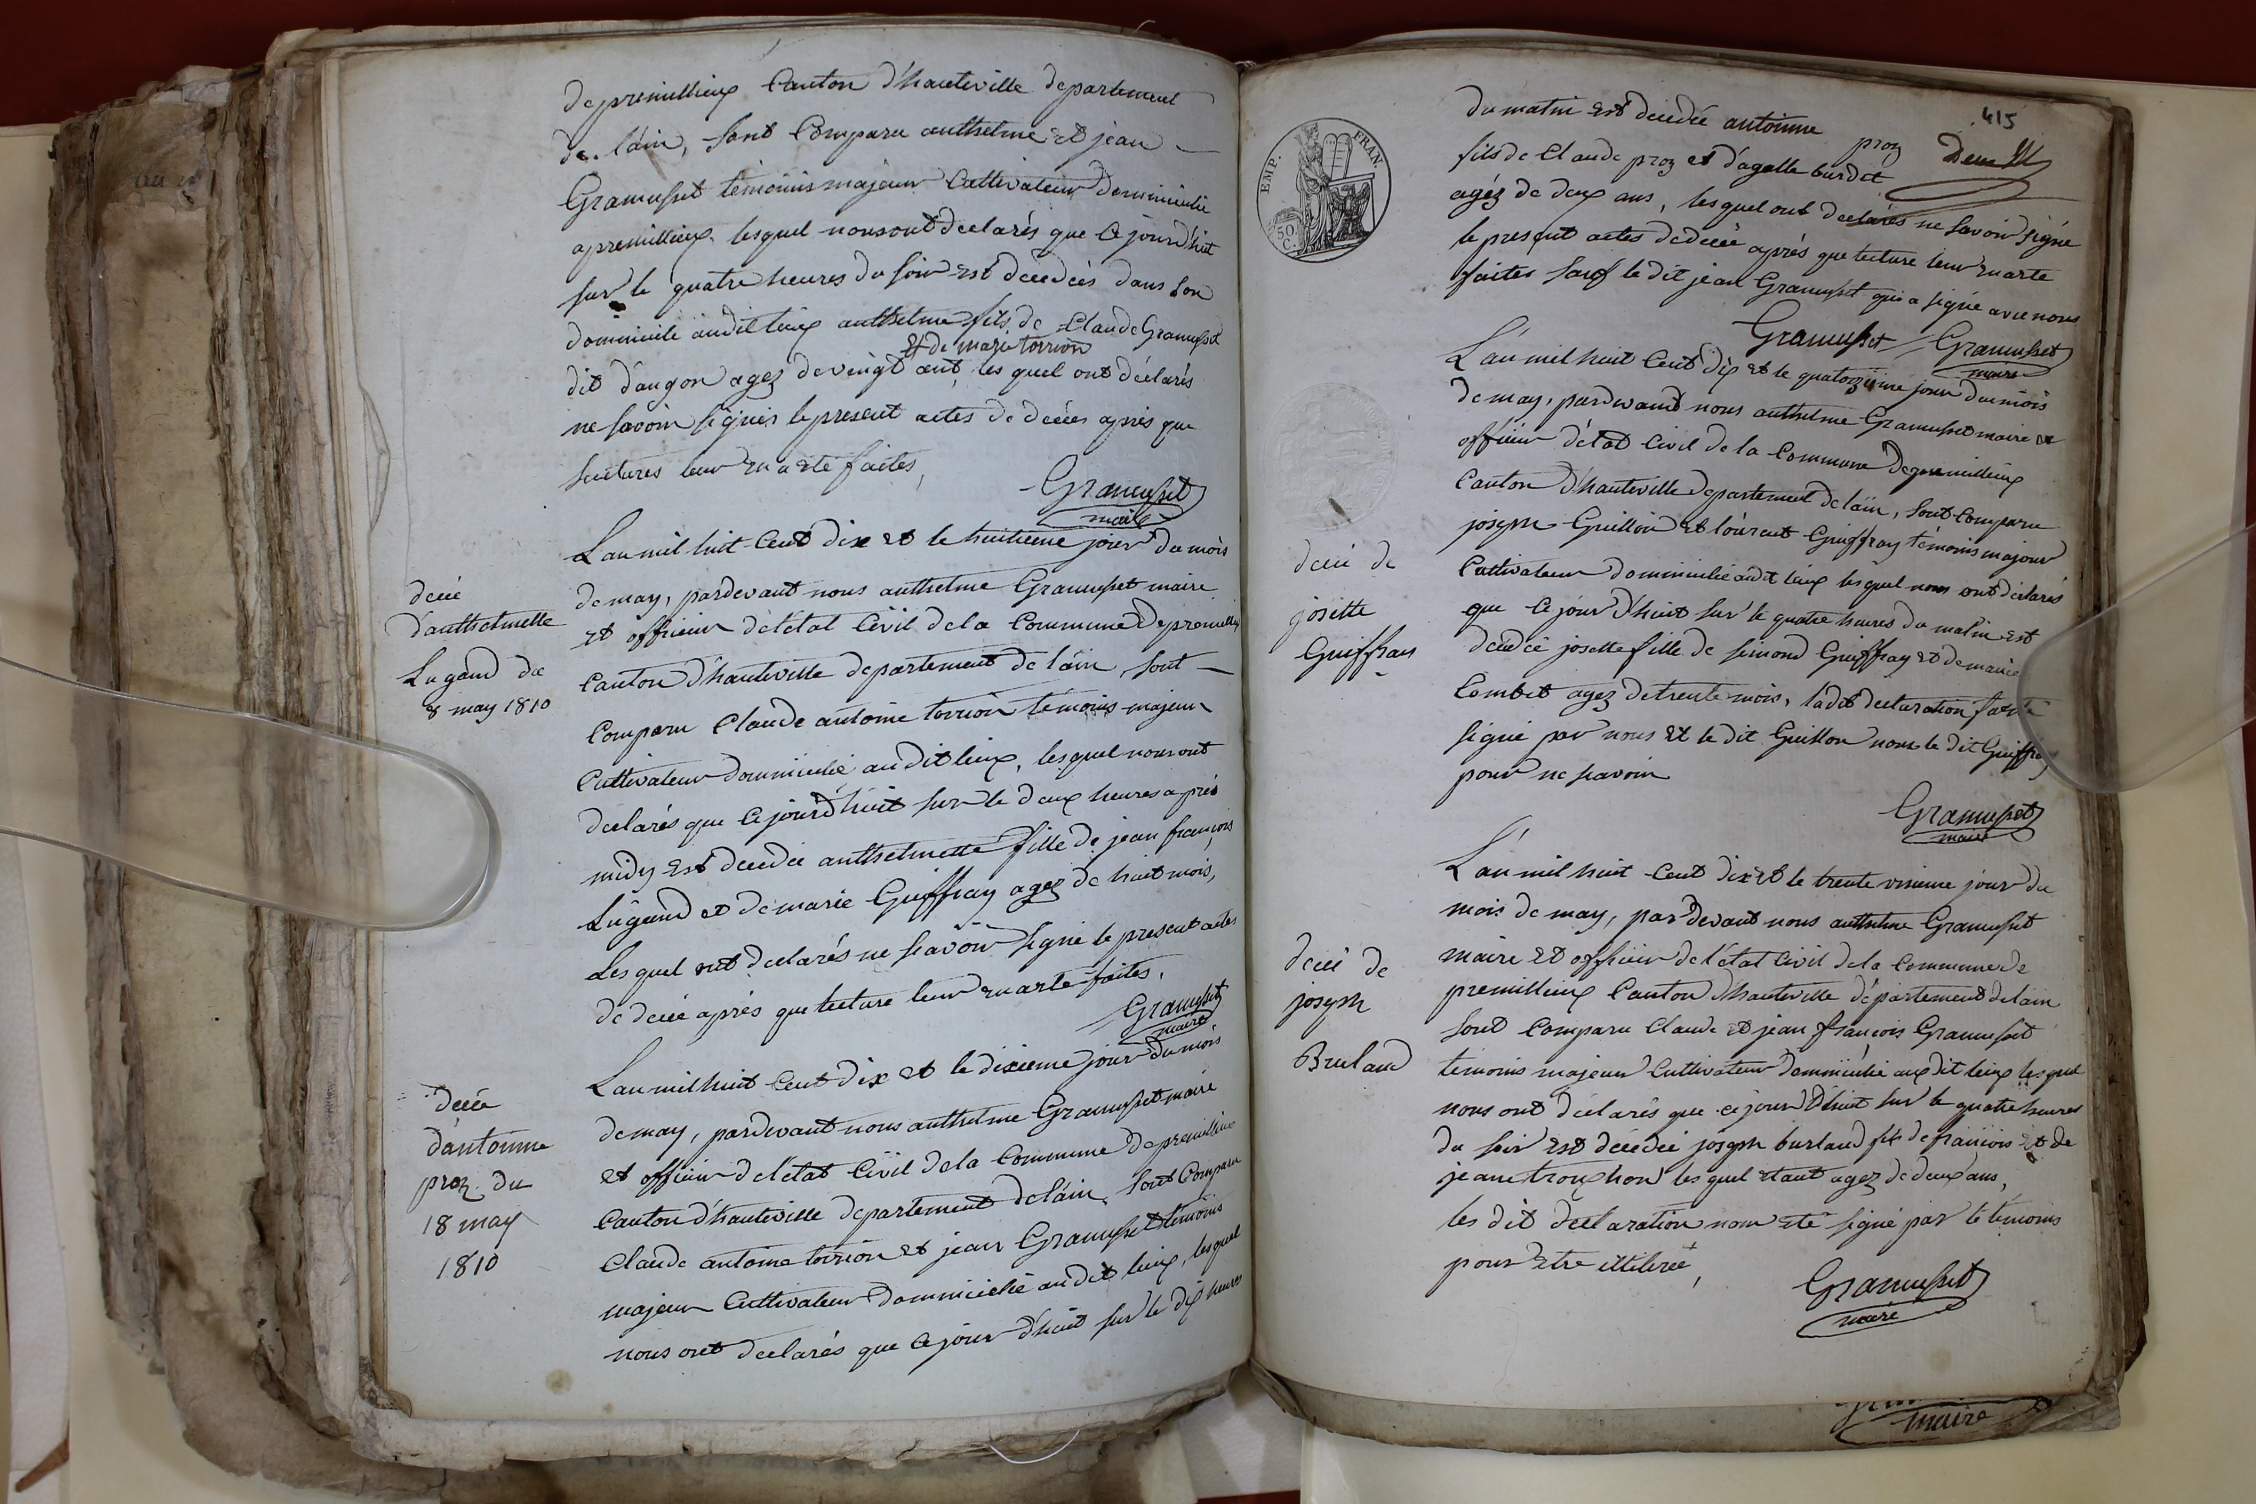 de premillieux Canton d'hauteville departement
de lain, sont Comparu anthelme et jean
Gramusset temoins majeur Cultivateur Dominicilie
a premillieux lesquel nous ont declarés que Ce jourd'huit
sur le quatre heures du soir est décédées dans son
dominicile audit lieux anthelme fils de Claude Gramusset
et de marie torrion
dit dangon agez de vingt ant, les quel ont déclarés
ne savoir signés le present actes de décées après que
lectures leur en a ete faites,
Gramusset
maire
décé
d'anthelmette
Lugand du
8 may 1810
L'an mil huit Cent dix et le huitieme jour du mois
de may, pardevant nous anthelme Gramusset maire
et officier de létat Civil de la Commune de premillieux
Canton d'hauteville departement de lain, sont
Comparu Claude antoine torrion témoins majeur
Cultivateur dominicilié audit lieux, lesquel nous ont
declarés que Ce jourd'huit sur le deux heures après
midy est décédée anthelmette fille de jean françois
Lugand et de marie Guiffray agez de huit mois,
Les quel ont declarés ne scavoir signé le present actes
de décé après que lecture leur en a ete faites.
Gramusset
maire
décée
d'antoinne
proz du
18 may
1810
L'an mil huit Cent dix et le dixieme jour du mois
de may, pardevant nous anthelme Gramusset maire
et officier de létat Civil de la Commune de premillieux
Canton d'hauteville departement de lain, sont Comparu
Claude antoine torrion et jean Gramusset témoins
majeur Cultivateur dominicielié audit lieux, lesquel
nous ont declarés que Ce jour d'huit sur le dix heures
415
EMP. FRAN.
50 C.
du matin est décédée antoinne proz
fils de Claude proz et d'agathe burdet
agéz de deux ans, les quel ont declarés ne savoir signé
le present actes de décé après que lecture leur en a ete
faites sauf le dit jean Gramusset qui a signé avec nous
Gramusset Gramusset
maire
décé de
josette
Guiffray
L'an mil huit Cent dix et le quatorzième jour du mois
de may, pardevant nous anthelme Gramusset maire et
officier d'état Civil de la Commune de premillieux
Canton d'hauteville departement de lain, sont Comparu
joseph Guillon et lourent Guiffray témoins majeur
Cultivateur dominicilié audit lieux lesquel nous ont déclarés
que Ce jour d'huit sur le quatre heures du matin est
décédée josette fille de simond Guiffray et de marie
Combet agez de trente mois, ladit declaration
signé par nous et le dit Guillon nom le dit Guiffray
pour ne scavoir
Gramusset
maire
décé de
joseph
Bruland
L'an mil huit Cent dix et le trente unieme jour du
mois de may, par devant nous anthelme Gramusset
maire et officier de létat Civil de la Commune de
premillieux Canton d'hauteville département de lain
sont Comparu Claude et jean françois Gramusset
temoins majeur Cultivateur dominicilié audit lieux lesquel
nous ont déclarés que Ce jour d'huit sur le quatre heures
du soir est décédée joseph burland fils de françois et de
jeane trouchon les quel etant agez de deux ans,
les dit declaration nom eté signé par le témoins
pour etre illiteree,
Gramusset
maire
maire